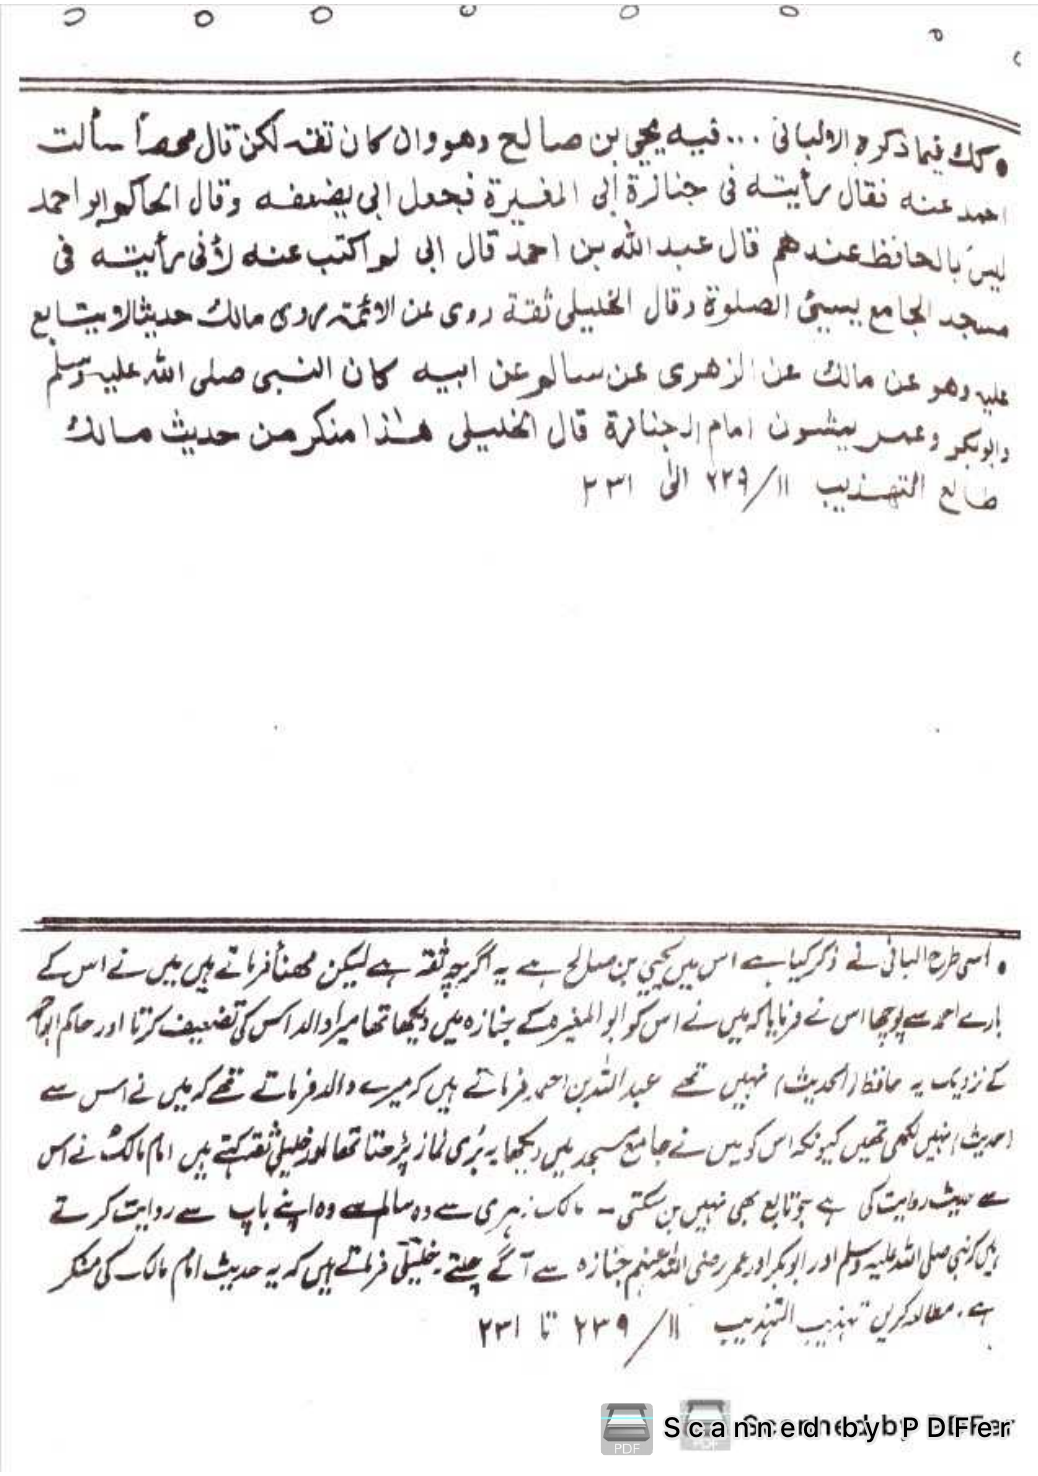 كك فيما ذكره الالبانى ... فيه يحيى بن صالح وهو وان كان ثقه لكن قال مهنأ سألت
احمد عنه فقال رأيته فى جنازة ابى المغيرة فجعل ابى يضعفه وقال الحاكم ابو احمد
ليس بالحافظ عندهم قال عبد الله بن احمد قال ابى لم اكتب عنه لانى رأيته فى
مسجد الجامع يسيئ الصلوة وقال الخليلى ثقة روى عن الائمة روى مالك حديثا لا يتابع
عليه وهو عن مالك عن الزهرى عن سالم عن ابيه كان النبى صلى الله عليه وسلم
وابوبكر وعمر يمشون امام الجنازة قال الخليلى هذا منكر من حديث مالك
طالع التهذيب ١١/٢٢٩ الى ٢٣١
اسی طرح البانی نے ذکر کیا ہے اس میں یحییٰ بن صالح ہے یہ اگرچہ ثقہ ہے لیکن مھنأ فرماتے ہیں میں نے اس کے
بارے احمد سے پوچھا اس نے فرمایا کہ میں نے اس کو ابو المغیرہ کے جنازہ میں دیکھا تھا میرا والد اس کی تضعیف کرتا اور حاکم ابواحمد
کے نزدیک یہ حافظ (الحدیث) نہیں تھے عبد اللہ بن احمد فرماتے ہیں کہ میرے والد فرماتے تھے کہ میں نے اس سے
(حدیث) نہیں لکھی تھیں کیونکہ اس کو میں نے جامع مسجد میں دیکھا یہ بُری نماز پڑھتا تھا اور خلیلی ثقہ کہتے ہیں امام مالک نے اس
سے حدیث روایت کی ہے جو تابع بھی نہیں بن سکتی - مالک زہری سے وہ سالم سے وہ اپنے باپ سے روایت کرتے
ہیں کہ نبی صلی اللہ علیہ وسلم اور ابوبکر اور عمر رضی اللہ عنہم جنازہ سے آگے چلتے خلیلی فرماتے ہیں کہ یہ حدیث امام مالک کی منکر
ہے۔ مطالعہ کریں تہذیب التہذیب ١١/٢٣٩ تا ٢٣١
Scanned by PDFer
Scanned by PDFer